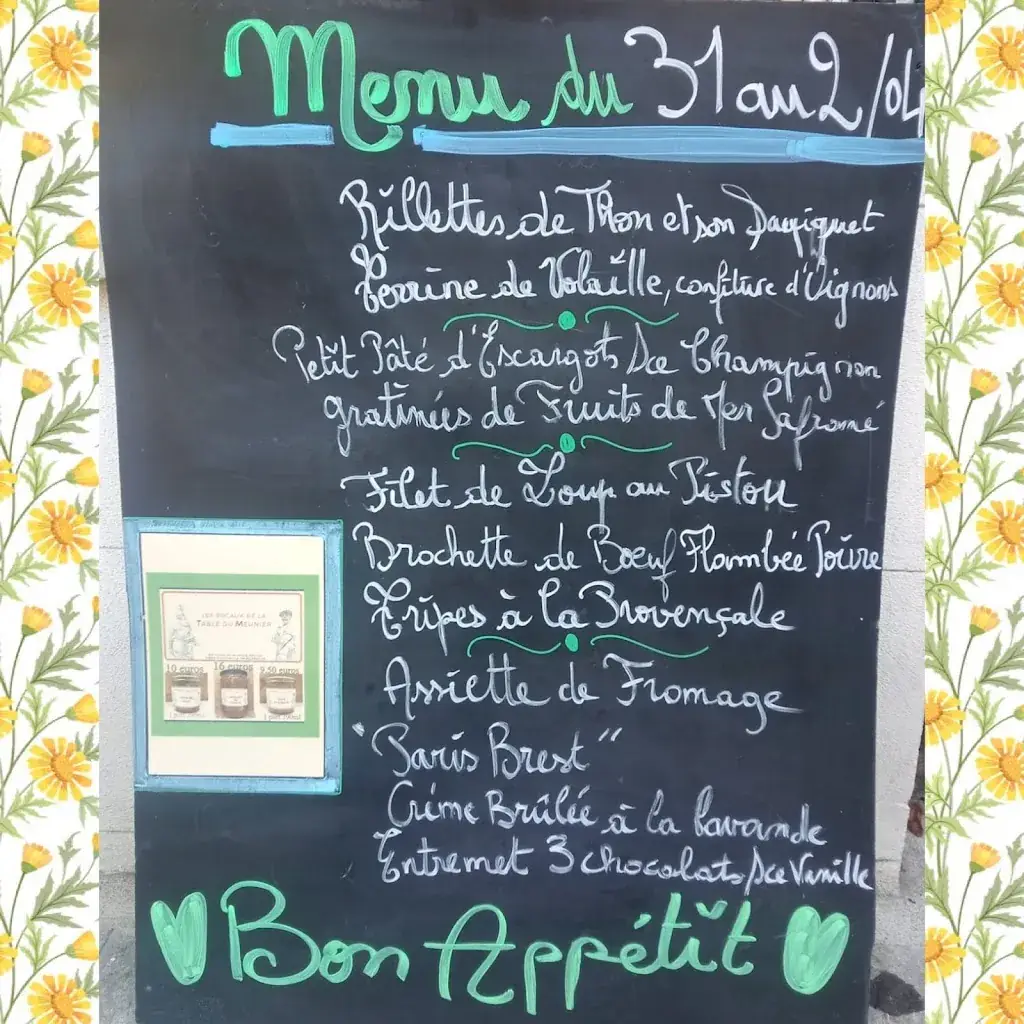 Menu du 31 au 2/04
Rillettes de Thon et son
Terrine de Volaille, confiture d'Oignons
Petit Pâté d'Escargots Sce Champignon
gratinées de Fruits de Mer Safrané
Filet de Loup au Pistou
Brochette de Bœuf Flambée Poivre
Tripes à la Provençale
Assiette de Fromage
"Paris Brest"
Crème Brûlée à la lavande
Entremet 3 chocolats Sce Vanille
LES BOCAUX DE LA
TABLE DU MEUNIER
10 euros 16 euros 9,50 euros
Bon Appétit